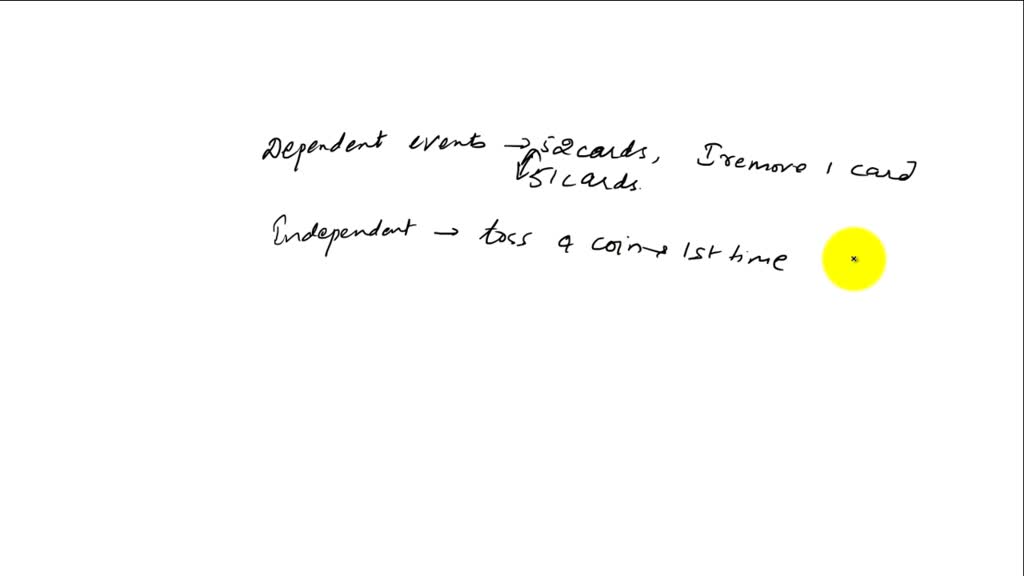 Dependent events → 52 cards, I remove 1 card
51 cards.
Independent → toss a coin → 1st time